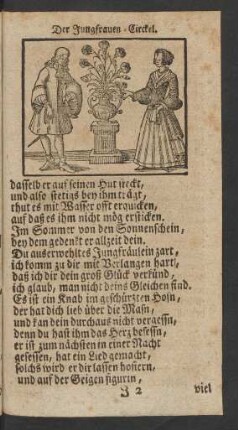 Der Jungfrauen-Circkel.
dasselb er auf seinen Hut steckt,
und also stetigs bey ihm trägt,
thut es mit Wasser offt erquicken,
auf daß es ihm nicht mög ersticken.
Im Sommer von den Sonnenschein,
bey dem gedenkt er allzeit dein.
Du auserwehltes Jungfräulein zart,
ich komm zu dir mit Verlangen hart,
daß ich dir dein groß Glück verkünd,
ich glaub, man nicht deins Gleichen find.
Es ist ein Knab im geschürzten Hosn,
der hat dich lieb über die Masn,
und kan dein durchaus nicht vergessn,
denn du hast ihm das Herz besessn,
er ist zum nächsten in einer Nacht
gesessen, hat ein Lied gemacht,
solchs wird er dir lassen hofiern,
und auf der Geigen figurin,
J 2 viel